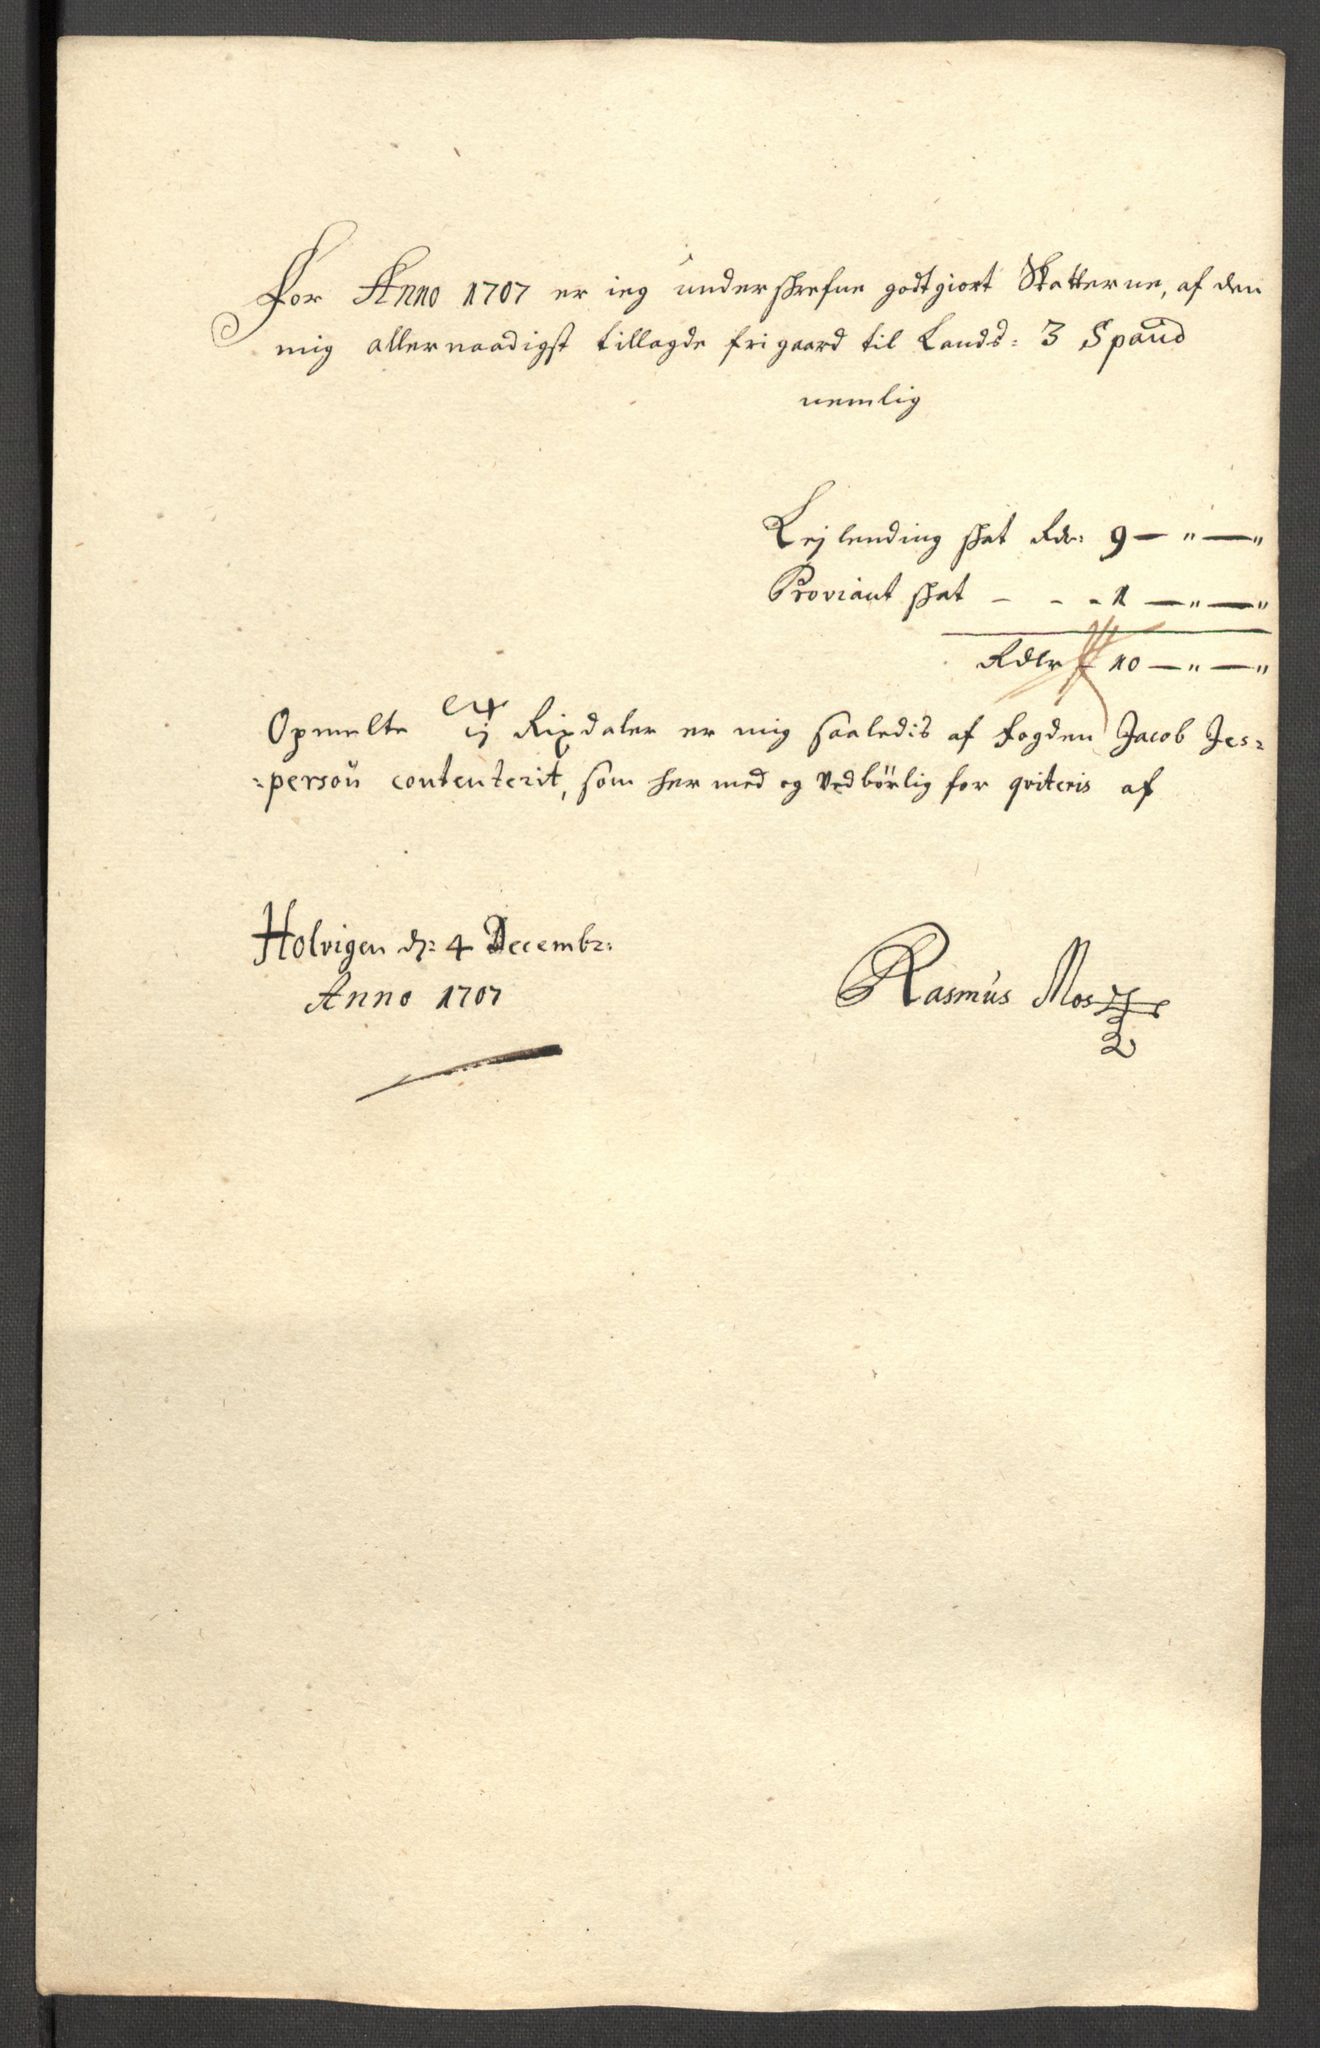 For Anno 1707 er ieg underskrefne godtgiort Skatterne, af den
mig allernaadigst tillagde frigaard til Lands: 3 Spand
nemlig
Lejlending skat Rdr: 9 — " — "
Proviant skat - - - 1 — " — "
Rdlr 10 — " — "
Opmelte Rixdaler er mig saaledis af fogden Jacob Jes=
=person contenterit, som her med og vedbörlig for qviteris af
Holvigen d: 4 Decembr:
Anno 1707
Rasmus Mos